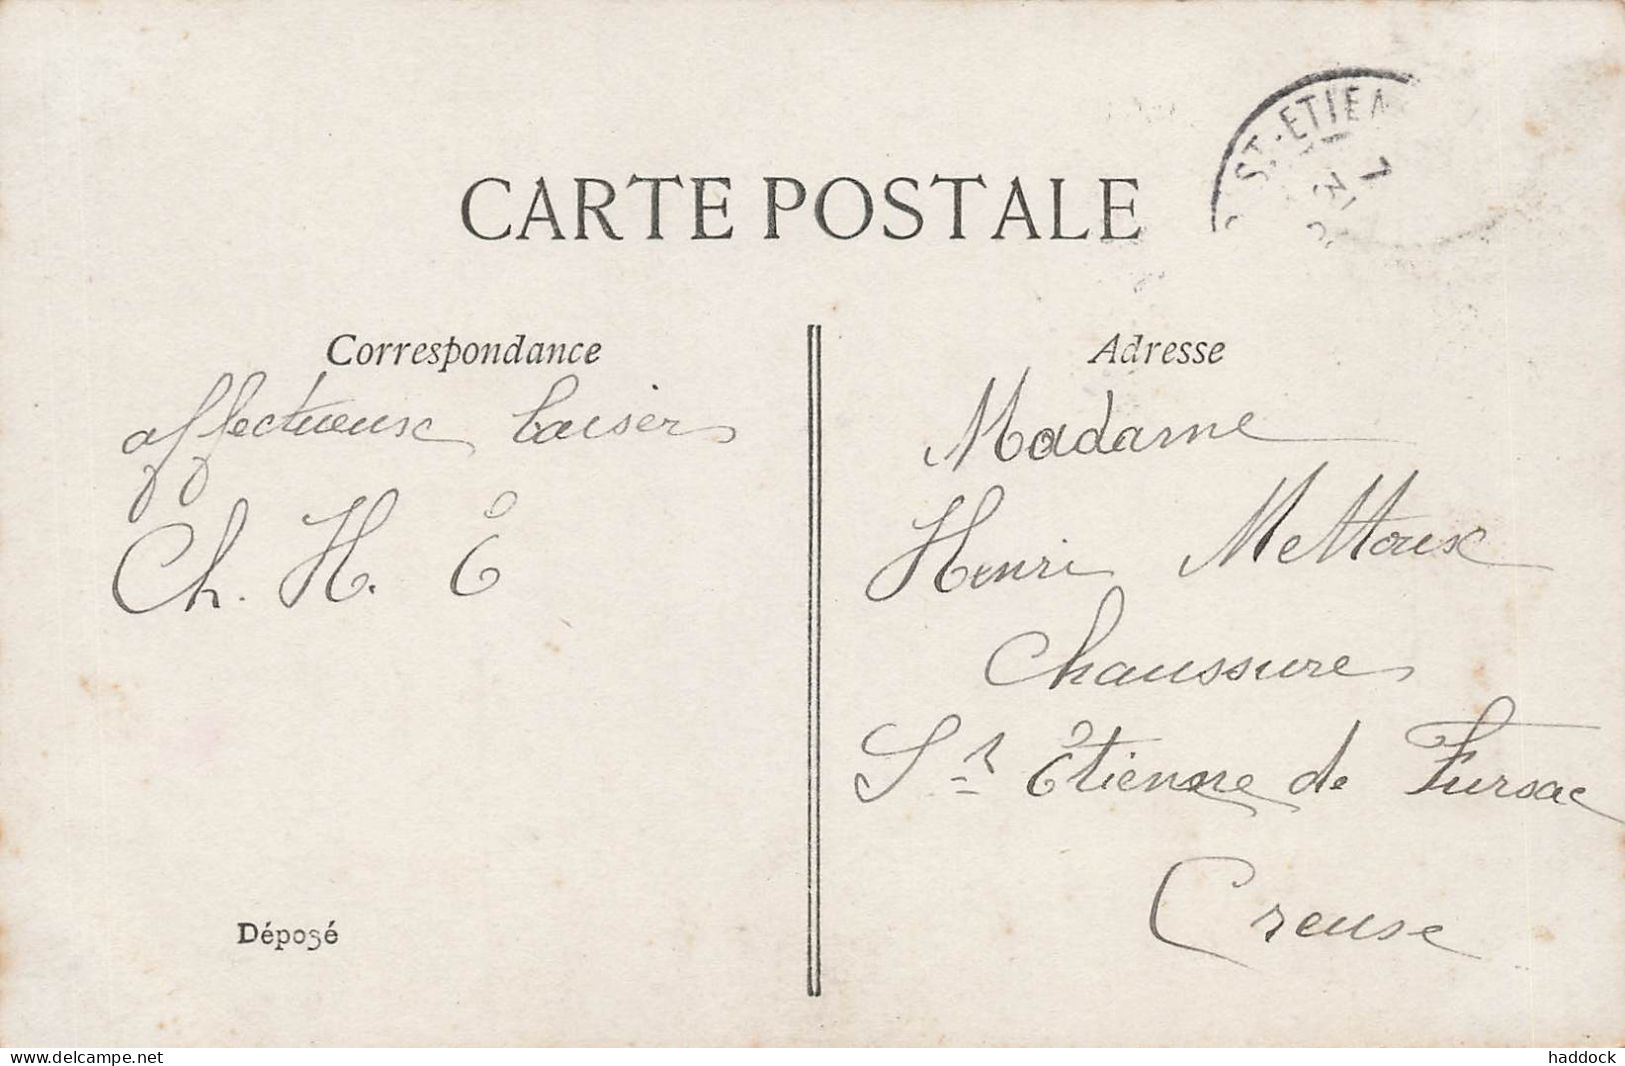 ST-ETIEN
7
CARTE POSTALE
Correspondance
affectueux baiser
Ch. H. E
Déposé
Adresse
Madame
Henri Mettoux
Chaussure
St Étienne de Fursac
Creuse
www.delcampe.net
haddock